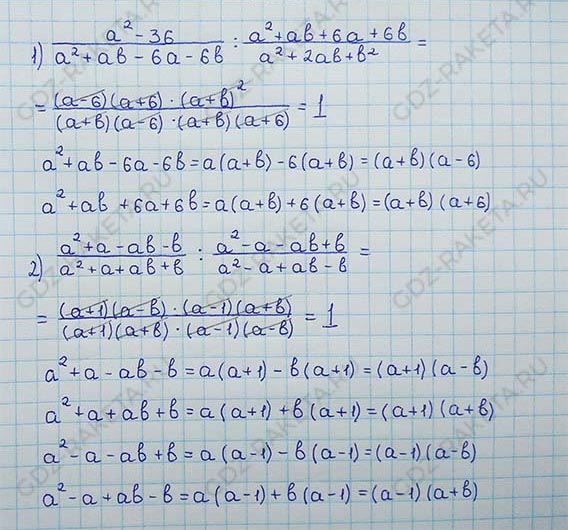 1) (a² - 36)/(a² + ab - 6a - 6b) : (a² + ab + 6a + 6b)/(a² + 2ab + b²) =
= ((a-6)(a+6) · (a+b)²)/((a+b)(a-6) · (a+b)(a+6)) = 1
a² + ab - 6a - 6b = a(a+b) - 6(a+b) = (a+b)(a-6)
a² + ab + 6a + 6b = a(a+b) + 6(a+b) = (a+b)(a+6)
2) (a² + a - ab - b)/(a² + a + ab + b) : (a² - a - ab + b)/(a² - a + ab - b) =
= ((a+1)(a-b) · (a-1)(a+b))/((a+1)(a+b) · (a-1)(a-b)) = 1
a² + a - ab - b = a(a+1) - b(a+1) = (a+1)(a-b)
a² + a + ab + b = a(a+1) + b(a+1) = (a+1)(a+b)
a² - a - ab + b = a(a-1) - b(a-1) = (a-1)(a-b)
a² - a + ab - b = a(a-1) + b(a-1) = (a-1)(a+b)
GDZ-RAKETA.RU